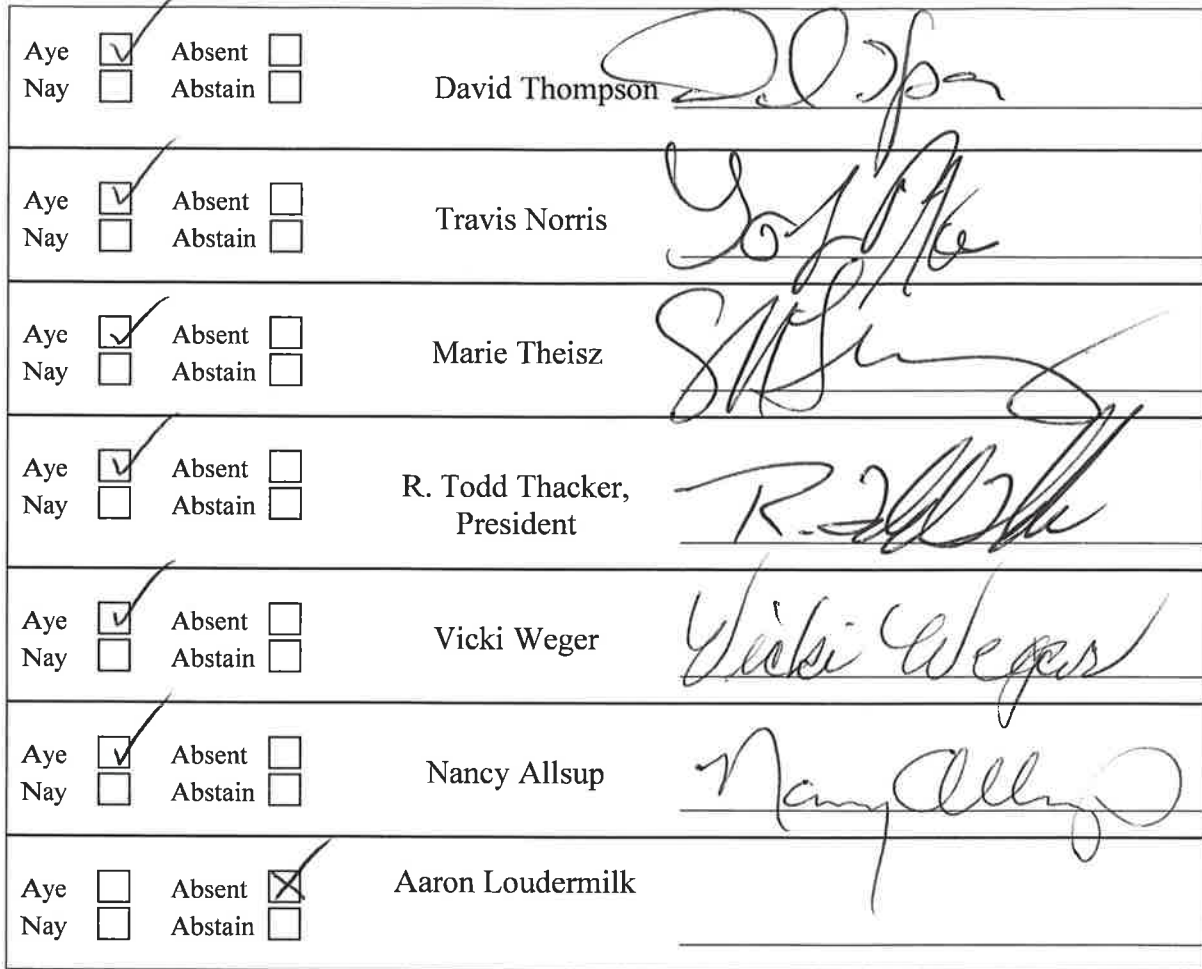 Aye ☑ Absent ☐
Nay ☐ Abstain ☐
David Thompson
Aye ☑ Absent ☐
Nay ☐ Abstain ☐
Travis Norris
Aye ☑ Absent ☐
Nay ☐ Abstain ☐
Marie Theisz
Aye ☑ Absent ☐
Nay ☐ Abstain ☐
R. Todd Thacker,
President
R. Todd
Aye ☑ Absent ☐
Nay ☐ Abstain ☐
Vicki Weger
Vicki Weger
Aye ☑ Absent ☐
Nay ☐ Abstain ☐
Nancy Allsup
Nancy Allsup
Aye ☐ Absent ☒
Nay ☐ Abstain ☐
Aaron Loudermilk